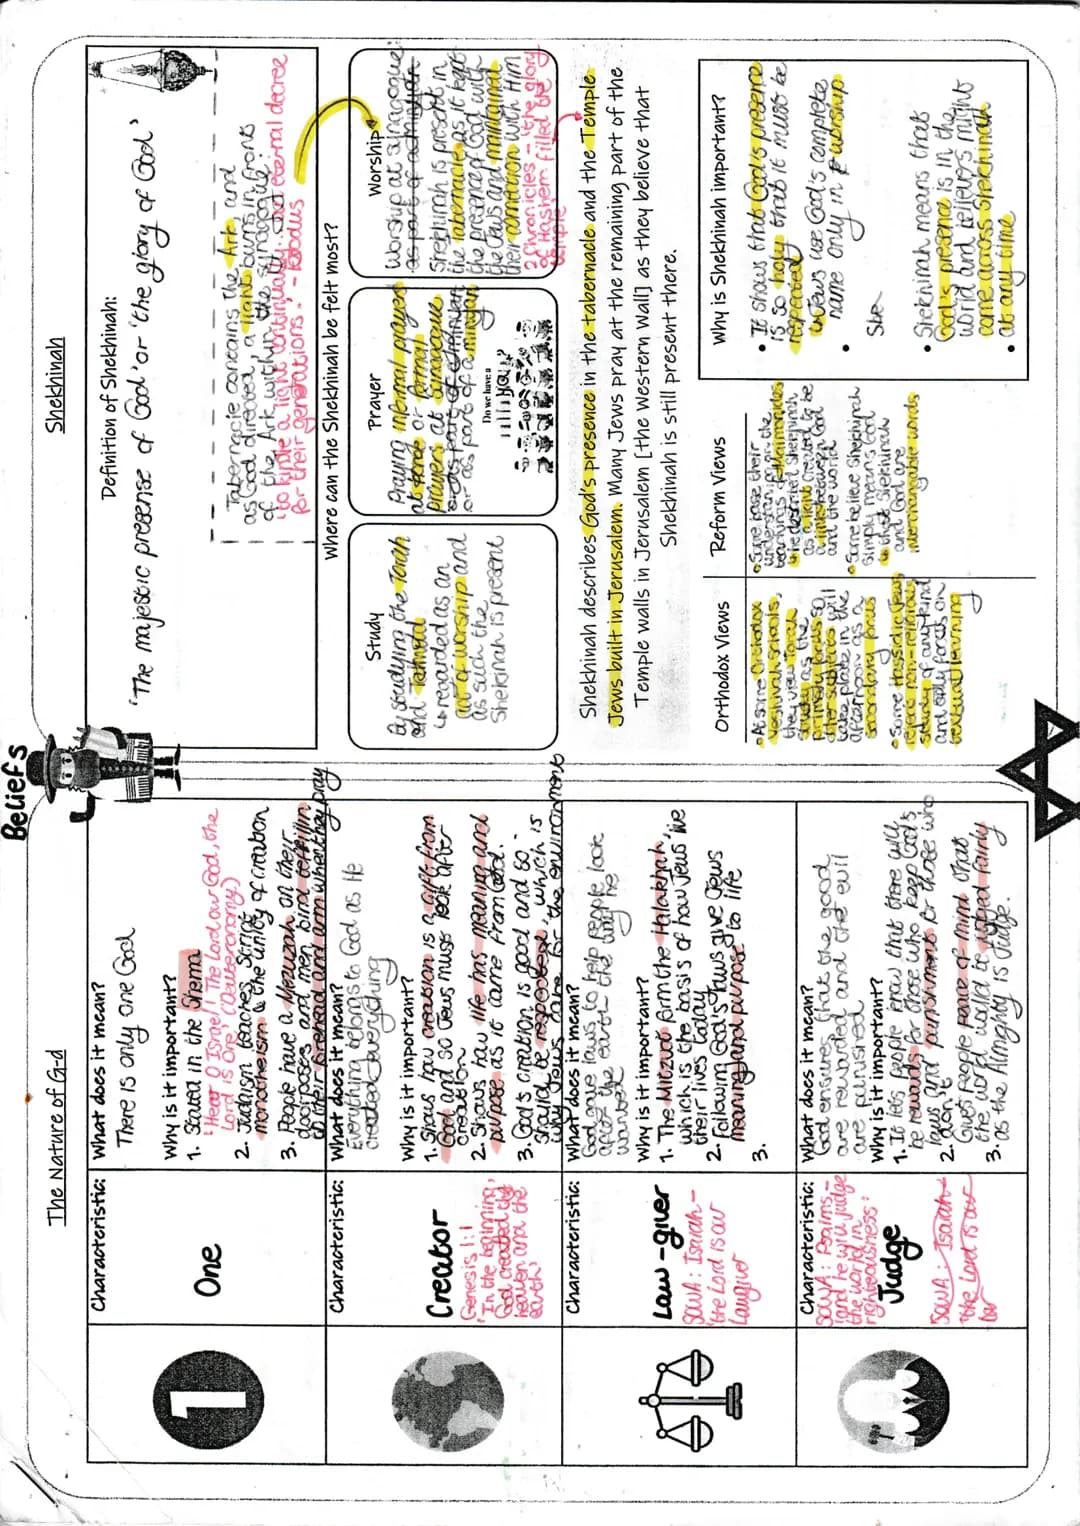 Beliefs
The Nature of G-d
Characteristic:
One
What does it mean?
There is only one God
Why is it important?
1. Stated in the Shema
'Hear O Israel! The Lord our God, the
Lord is One' (Deuteronomy)
2. Judaism teaches strict
monotheism & the unity of creation
3. People have a Mezuzah on their
doorposts and men bind tefillin
on their forehead and arm when they pray
Characteristic:
Creator
Genesis 1:1
'In the beginning,
God created the
heaven and the
earth'
What does it mean?
Everything belongs to God as He
created everything
Why is it important?
1. Shows how creation is a gift from
God and so Jews must look after
creation
2. Shows how life has meaning and
purpose as it came from God.
3. God's creation is good and so
should be respected, which is
why Jews care for the environment
Characteristic:
Law-giver
SOWA: Isaiah -
'the Lord is our
lawgiver'
What does it mean?
God gave laws to help people look
after the earth - the way he
wanted
Why is it important?
1. The Mitzvot form the Halakhah,
which is the basis of how Jews live
their lives today
2. Following God's laws give Jews
meaning and purpose to life
3.
Characteristic:
SOWA: Psalms -
'and he will judge
the world in
righteousness'
Judge
SOWA: Isaiah -
'the Lord is our
What does it mean?
God ensures that the good
are rewarded and the evil
are punished
Why is it important?
1. It lets people know that there will
be rewards for those who keep God's
laws and punishments for those who
don't
2. Gives people peace of mind that
the world would be judged fairly
3. as the Almighty is Judge.
Shekhinah
Definition of Shekhinah:
'The majestic presense of God' or 'the glory of God'
Tabernacle contains the Ark, and
as God directed, a light burns in front
of the Ark within the synagogue:
'to kindle a light continually... an eternal decree
for their generations.' - Exodus
Where can the Shekhinah be felt most?
Study
By studying the Torah
and Talmud
↳ regarded as an
act of worship and
as such the
Shekinah is present
Prayer
Praying informal prayers
at home or formal
prayers at synagogue
or as part of a minyan
Do we have a
Worship
Worship at synagogue
Shekhinah is present in
the tabernacle as it kept
the presence of God with
the Jews and maintained
their connection with Him
2 Chronicles - 'the glory
of Hashem filled the
temple'
Shekhinah describes God's presence in the tabernacle and the Temple
Jews built in Jerusalem. Many Jews pray at the remaining part of the
Temple walls in Jerusalem [the Western Wall] as they believe that
Shekhinah is still present there.
Orthodox Views
• At some Orthodox
Yeshivah schools,
they view Torah
study as the
primary focus so
other subjects will
take place in the
afternoon as a
secondary focus
• Some Hassidic Jews
reject non-religious
study of any kind
and only focus on
textual learning
Reform Views
• Some base their
understanding on the
teachings of Maimonides
↳ he described Shekhinah
as a light created to be
a link between God
and the world
• Some believe Shekhinah
simply means God
↳ that Shekhinah
and God are
interchangable words
Why is Shekhinah important?
• It shows that God's presence
is so holy that it must be
respected
• Jews use God's complete
name only in worship
She
• Shekhinah means that
God's presence is in the
world and believers might
come across Shekhinah
• at any time